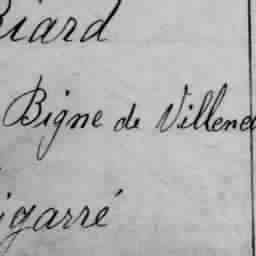 Biard
Bigne de Villene
igarré